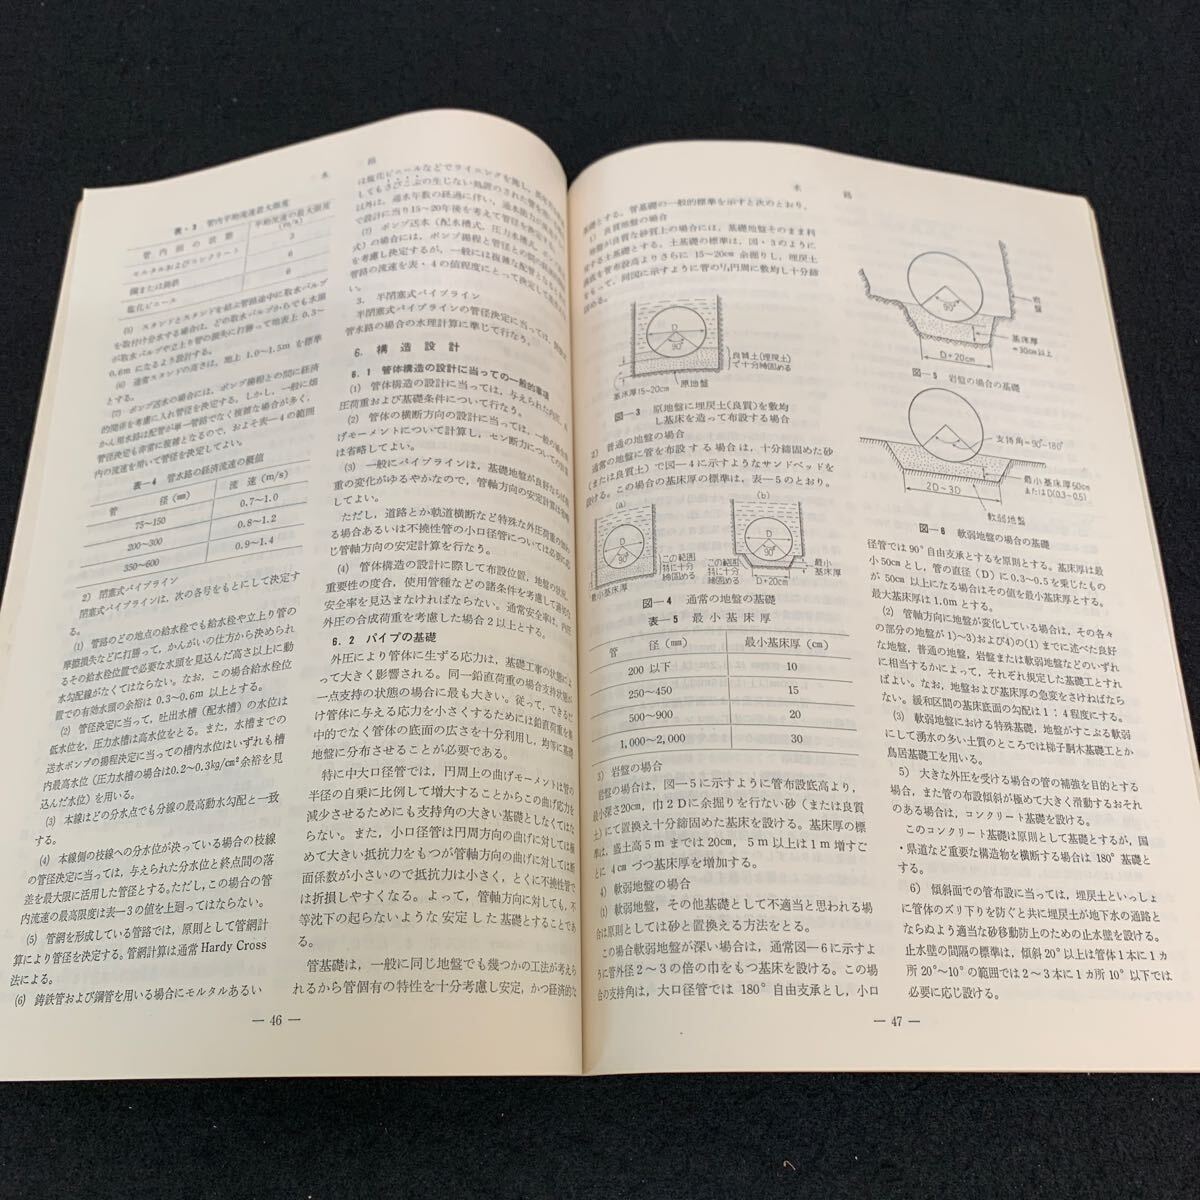 水　　路
表-3　管内平均流速最大限度
管内面の状態　平均流速の最大限度(m/s)
モルタルおよびコンクリート　3
鋼または鋳鉄　6
塩化ビニール　6
(5)　スタンドとスタンドを結ぶ管路途中に取水バルブ
を取付け分水する場合は、どの取水バルブからでも水頭
が取水バルブや立上り管の損失に打勝って地表上 0.3~
0.6m になるよう設計する。
(6)　通常スタンドの高さは、地上 1.0~1.5m を標準
とする。
(7)　ポンプ送水の場合には、ポンプ揚程との間に経済
的関係を考慮に入れ管径を決定する。しかし、一般に畑
かん用水路は配管が単一管路でなく複雑な場合が多く、
管径決定も非常に複雑となるので、およそ表―4 の範囲
内の流速を用いて管径を決定してよい。
表―4　管水路の経済流速の概値
管　径(mm)　流速(m/s)
75~150　0.7~1.0
200~300　0.8~1.2
350~600　0.9~1.4
2)　閉塞式パイプライン
閉塞式パイプラインは、次の各号をもとにして決定す
る。
(1)　管路のどの地点の給水栓でも給水栓や立上り管の
摩擦損失などに打勝って、かんがいの仕方から決められ
るその給水栓位置で必要な水頭を見込んだ高さ以上に動
水勾配線がなくてはならない。なお、この場合給水栓位
置での有効水頭の余裕は 0.3~0.6m 以上とする。
(2)　管径決定に当って、吐出水槽(配水槽)の水位は
低水位を、圧力水槽は高水位をとる。また、水槽までの
送水ポンプの揚程決定に当っての槽内水位はいずれも槽
内最高水位(圧力水槽の場合は0.2~0.3kg/cm²余裕を見
込んだ水位)を用いる。
(3)　本線はどの分水点でも分線の最高動水勾配と一致
する。
(4)　本線側の枝線への分水位が決っている場合の枝線
の管径決定に当っては、与えられた分水位と終点間の落
差を最大限に活用した管径とする。ただし、この場合の管
内流速の最高限度は表―3の値を上廻ってはならない。
(5)　管網を形成している管路では、原則として管網計
算により管径を決定する。管網計算は通常 Hardy Cross
法による。
(6)　鋳鉄管および鋼管を用いる場合にモルタルあるい
は塩化ビニールなどでライニングを施し、
してもさびこぶの生じない処置のされた管を
以外は、通水年数の経過に伴い、通水
で設計に当り15~20年後を考えて管径を決定する。
(7)　ポンプ送水(配水槽式、圧力水槽式、ポンプ
式)の場合には、ポンプ揚程と管径との間の
を考慮し決定するが、一般には複雑な配管となる
管路の流速を表・4の値程度にとって決定して
い。
3.　半閉塞式パイプライン
半閉塞式パイプラインの管径決定に当っては、
管水路の場合の水理計算に準じて行なう。
6.　構造設計
6.1　管体構造の設計に当っての一般的事項
(1)　管体構造の設計に当っては、与えられた内圧、
圧荷重および基礎条件について行なう。
(2)　管体の横断方向の設計に当っては、一般の場合
げモーメントについて計算し、セン断力についての
は省略してよい。
(3)　一般にパイプラインは、基礎地盤が良好なら
重の変化がゆるやかなので、管軸方向の安定計算は省略
してよい。
ただし、道路とか軌道横断など特殊な外圧荷重の
る場合あるいは不撓性管の小口径管については必要に応
じ管軸方向の安定計算を行なう。
(4)　管体構造の設計に際して布設位置、地盤の状況、
重要性の度合、使用管種などの諸条件を考慮して適
安全率を見込まなければならない。通常安全率は、内圧
外圧の合成荷重を考慮した場合 2 以上とする。
6.2　パイプの基礎
外圧により管体に生ずる応力は、基礎工事の状態によ
って大きく影響される。同一鉛直荷重の場合支持状態が
一点支持の状態の場合に最も大きい。従って、できるだ
け管体に与える応力を小さくするためには鉛直荷重を集
中的でなく管体の底面の広さを十分利用し、均等に基礎
地盤に分布させることが必要である。
特に中大口径管では、円周上の曲げモーメントは管の
半径の自乗に比例して増大することからこの曲げ応力を
減少させるためにも支持角の大きい基礎としなくてはな
らない。また、小口径管は円周方向の曲げに対しては極
めて大きい抵抗力をもつが管軸方向の曲げに対しては断
面係数が小さいので抵抗力は小さく、とくに不撓性管で
は折損しやすくなる。よって、管軸方向に対しても、不
等沈下の起らないような安定した基礎とすることであ
る。
管基礎は、一般に同じ地盤でも幾つかの工法が考えら
れるから管個有の特性を十分考慮し安定、かつ経済的な
― 46 ―
水　　路
基礎とする。管基礎の一般的標準を示すと次のとおり。
1)　良質地盤の場合
地盤が良質な砂質土の場合には、基礎地盤そのまま利
する土基礎とする。土基礎の標準は、図・3 のように
底を管布設高よりさらに 15~20cm 余掘りし、埋戻土
をもって、同図に示すように管の¼円周に敷均し十分締
固める。
D
90°
良質土(埋戻土)
で十分締固める
原地盤
基床厚15~20cm
図―3　原地盤に埋戻土(良質)を敷均
し基床を造って布設する場合
2)　普通の地盤の場合
通常の地盤に管を布設する場合は、十分締固めた砂
(または良質土)で図―4に示すようなサンドベッドを
設ける。この場合の基床厚の標準は、表―5のとおり。
(a)
D
90°
この範囲
特に十分
締固める
最小基床厚
(b)
D
90°
この範囲
特に十分
締固める
D+20cm
最小
基床厚
図―4　通常の地盤の基礎
表―5　最小基床厚
管　径(mm)　最小基床厚(cm)
200 以下　10
250~450　15
500~900　20
1,000~2,000　30
3)　岩盤の場合
岩盤の場合は、図―5に示すように管布設底高より、
最小深さ20cm、巾２Ｄに余掘りを行ない砂(または良質
土)にて置換え十分締固めた基床を設ける。基床厚の標
準は、盛土高５ｍまでは 20cm、５ｍ以上は１ｍ増すご
とに 4cm づつ基床厚を増加する。
4)　軟弱地盤の場合
(1)　軟弱地盤、その他基礎として不適当と思われる場
合は原則としては砂と置換える方法をとる。
この場合軟弱地盤が深い場合は、通常図―６に示すよ
うに管外径２~３の倍の巾をもつ基床を設ける。この場
合の支持角は、大口径管では 180° 自由支承とし、小口
90°
岩盤
基床厚
=30cm以上
D+20cm
図―5　岩盤の場合の基礎
支持角=90°~180°
最小基床厚50cm
またはD(0.3~0.5)
2D~3D
軟弱地盤
図―6　軟弱地盤の場合の基礎
径管では 90° 自由支承とするを原則とする。基床厚は最
小 50cm とし、管の直径(D)に 0.3~0.5 を乗じたもの
が 50cm 以上になる場合はその値を最小基床厚とする。
最大基床厚は 1.0m とする。
(2)　管軸方向に地盤が変化している場合は、その各々
の部分の地盤が 1)~3)および4)の(1)までに述べた良好
な地盤、普通の地盤、岩盤または軟弱地盤などのいずれ
に相当するかによって、それぞれ規定した基礎工とすれ
ばよい。なお、地盤および基床厚の急変をさけねばなら
ない。緩和区間の基床底面の勾配は１：４程度にする。
(3)　軟弱地盤における特殊基礎、地盤がすこぶる軟弱
にして湧水の多い土質のところでは梯子胴木基礎工とか
鳥居基礎工を用いる。
5)　大きな外圧を受ける場合の管の補強を目的とする
場合、また管の布設傾斜が極めて大きく滑動するおそれ
のある場合は、コンクリート基礎を設ける。
このコンクリート基礎は原則として基礎とするが、国
・県道など重要な構造物を横断する場合は 180° 基礎と
する。
6)　傾斜面での管布設に当っては、埋戻土といっしょ
に管体のズリ下りを防ぐと共に埋戻土が地下水の通路と
ならぬよう適当な砂移動防止のための止水壁を設ける。
止水壁の間隔の標準は、傾斜 20° 以上は管体１本に１カ
所 20°~10° の範囲では２~３本に１カ所 10° 以下では
必要に応じ設ける。
― 47 ―